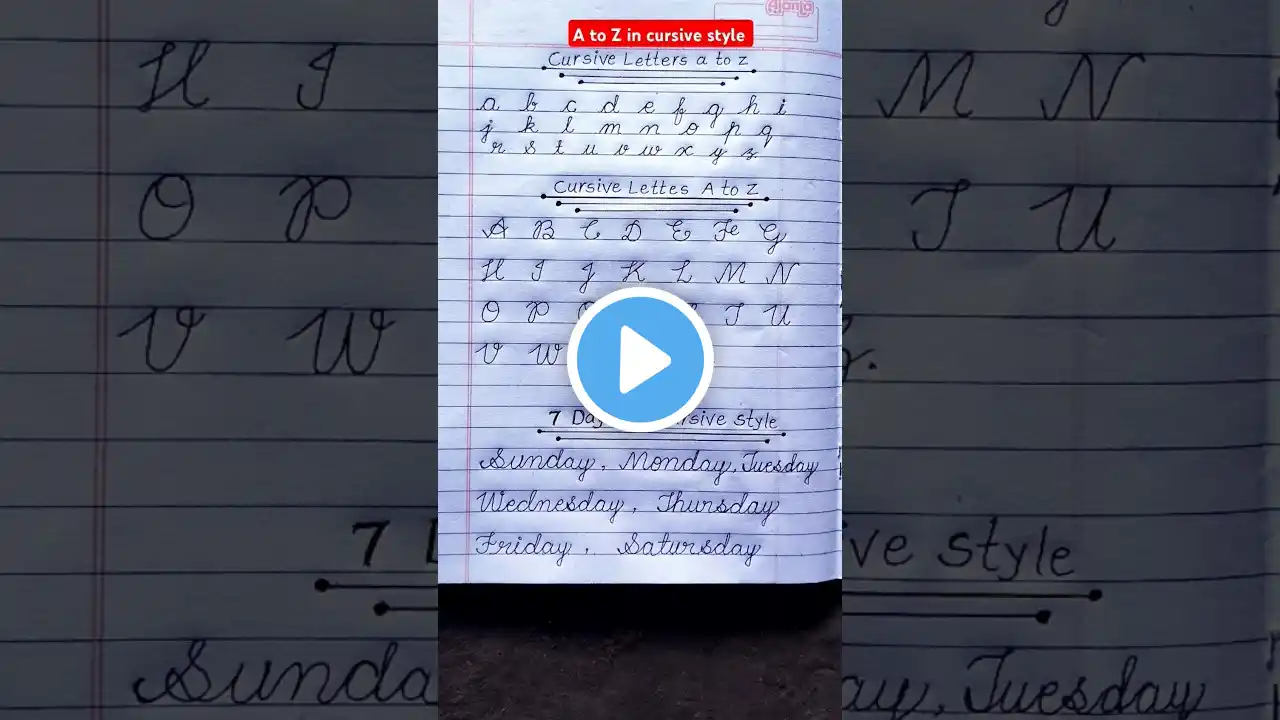 Ajanta
A to Z in cursive style
Cursive Letters a to z
a b c d e f g h i
j k l m n o p q
r s t u v w x y z.
Cursive Lettes A to Z
A B C D E F G
H I J K L M N
O P T U
V W
7 Style
Sunday, Monday, Tuesday
Wednesday, Thursday
Friday, Satursday